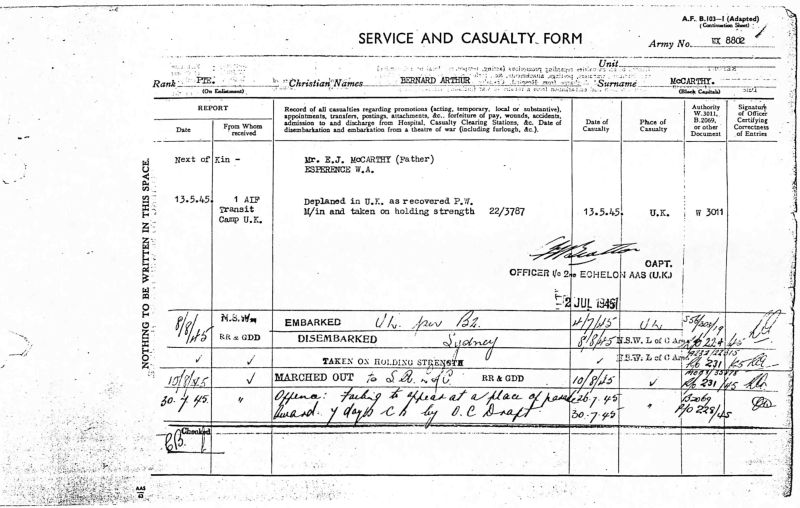 A.F. B.103—I (Adapted)
(Continuation Sheet)
SERVICE AND CASUALTY FORM
Army No. WX 8802
Unit
Rank PTE. Christian Names BERNARD ARTHUR Surname McCARTHY.
(On Enlistment) (Block Capitals)
REPORT
Date
From Whom received
Record of all casualties regarding promotions (acting, temporary, local or substantive),
appointments, transfers, postings, attachments, &c., forfeiture of pay, wounds, accidents,
admission to and discharge from Hospital, Casualty Clearing Stations, &c. Date of
disembarkation and embarkation from a theatre of war (including furlough, &c.).
Date of Casualty
Place of Casualty
Authority W.3011, B.2069, or other Document
Signature of Officer Certifying Correctness of Entries
NOTHING TO BE WRITTEN IN THIS SPACE.
Next of Kin - Mr. E.J. McCARTHY (Father)
ESPERENCE W.A.
13.5.45. 1 AIF Transit Camp U.K. Deplaned in U.K. as recovered P.W.
M/in and taken on holding strength 22/3787 13.5.45. U.K. W 3011
CAPT.
OFFICER I/c 2ND ECHELON AAS (U.K.)
2 JUL 1945
EMBARKED U.K. per B2. 4/7/45 UK
8/8/45 RR & GDD DISEMBARKED Sydney 8/8/45 N.S.W. L of C Area R/o 224/45
TAKEN ON HOLDING STRENGTH N.S.W. L of C Area R/o 231/45
10/8/45 MARCHED OUT to RR & GDD 10/8/45 R/o 231/45
30.7.45. " Offence: Failing to appear at a place of parade 26.7.45
Award. 7 days C.B. by O.C. Draft. 30.7.45 " B2069 P/o 228/45
Checked
AAS